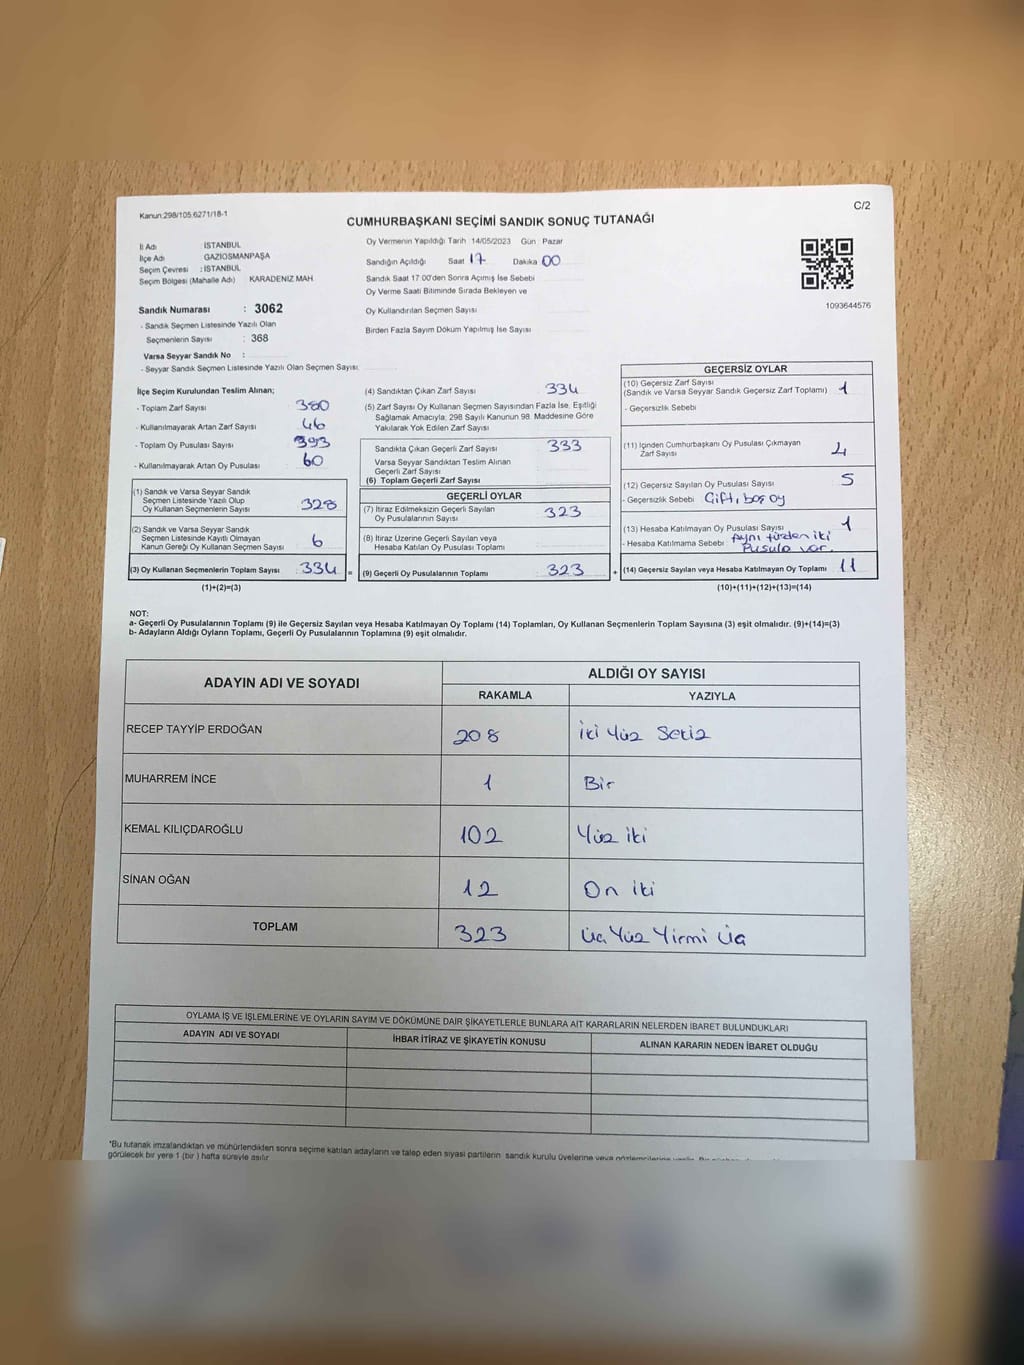 Kanun:298/105;6271/18-1
C/2
CUMHURBAŞKANI SEÇİMİ SANDIK SONUÇ TUTANAĞI
İl Adı : İSTANBUL
İlçe Adı GAZİOSMANPAŞA
Seçim Çevresi : İSTANBUL
Seçim Bölgesi (Mahalle Adı) KARADENİZ MAH
Oy Vermenin Yapıldığı Tarih 14/05/2023 Gün Pazar
Sandığın Açıldığı Saat 17 Dakika 00
Sandık Saat 17:00'den Sonra Açımış İse Sebebi
Oy Verme Saati Bitiminde Sırada Bekleyen ve
Oy Kullandırılan Seçmen Sayısı
Birden Fazla Sayım Döküm Yapılmış İse Sayısı
1093644576
Sandık Numarası : 3062
- Sandık Seçmen Listesinde Yazılı Olan
Seçmenlerin Sayısı : 368
Varsa Seyyar Sandık No :
- Seyyar Sandık Seçmen Listesinde Yazılı Olan Seçmen Sayısı:
İlçe Seçim Kurulundan Teslim Alınan;
- Toplam Zarf Sayısı 380
- Kullanılmayarak Artan Zarf Sayısı 46
- Toplam Oy Pusulası Sayısı 393
- Kullanılmayarak Artan Oy Pusulası 60
(1) Sandık ve Varsa Seyyar Sandık
Seçmen Listesinde Yazılı Olup
Oy Kullanan Seçmenlerin Sayısı 328
(2) Sandık ve Varsa Seyyar Sandık
Seçmen Listesinde Kayıtlı Olmayan
Kanun Gereği Oy Kullanan Seçmen Sayısı 6
(3) Oy Kullanan Seçmenlerin Toplam Sayısı 334 =
(1)+(2)=(3)
(4) Sandıktan Çıkan Zarf Sayısı 334
(5) Zarf Sayısı Oy Kullanan Seçmen Sayısından Fazla İse, Eşitliği
Sağlamak Amacıyla; 298 Sayılı Kanunun 98. Maddesine Göre
Yakılarak Yok Edilen Zarf Sayısı
Sandıkta Çıkan Geçerli Zarf Sayısı 333
Varsa Seyyar Sandıktan Teslim Alınan
Geçerli Zarf Sayısı
(6) Toplam Geçerli Zarf Sayısı
GEÇERLİ OYLAR
(7) İtiraz Edilmeksizin Geçerli Sayılan
Oy Pusulalarının Sayısı 323
(8) İtiraz Üzerine Geçerli Sayılan veya
Hesaba Katılan Oy Pusulası Toplamı
(9) Geçerli Oy Pusulalarının Toplamı 323 +
GEÇERSİZ OYLAR
(10) Geçersiz Zarf Sayısı
(Sandık ve Varsa Seyyar Sandık Geçersiz Zarf Toplamı) 1
- Geçersizlik Sebebi
(11) İçinden Cumhurbaşkanı Oy Pusulası Çıkmayan
Zarf Sayısı 4
(12) Geçersiz Sayılan Oy Pusulası Sayısı 5
- Geçersizlik Sebebi Çift, boş oy
(13) Hesaba Katılmayan Oy Pusulası Sayısı 1
- Hesaba Katılmama Sebebi Aynı türden iki
Pusula var.
(14) Geçersiz Sayılan veya Hesaba Katılmayan Oy Toplamı 11
(10)+(11)+(12)+(13)=(14)
NOT:
a- Geçerli Oy Pusulalarının Toplamı (9) ile Geçersiz Sayılan veya Hesaba Katılmayan Oy Toplamı (14) Toplamları, Oy Kullanan Seçmenlerin Toplam Sayısına (3) eşit olmalıdır. (9)+(14)=(3)
b- Adayların Aldığı Oyların Toplamı, Geçerli Oy Pusulalarının Toplamına (9) eşit olmalıdır.
ADAYIN ADI VE SOYADI
ALDIĞI OY SAYISI
RAKAMLA YAZIYLA
RECEP TAYYİP ERDOĞAN 208 İki Yüz Sekiz
MUHARREM İNCE 1 Bir
KEMAL KILIÇDAROĞLU 102 Yüz iki
SİNAN OĞAN 12 On iki
TOPLAM 323 Üç Yüz Yirmi Üç
OYLAMA İŞ VE İŞLEMLERİNE VE OYLARIN SAYIM VE DÖKÜMÜNE DAİR ŞİKAYETLERLE BUNLARA AİT KARARLARIN NELERDEN İBARET BULUNDUKLARI
ADAYIN ADI VE SOYADI İHBAR İTİRAZ VE ŞİKAYETİN KONUSU ALINAN KARARIN NEDEN İBARET OLDUĞU
*Bu tutanak imzalandıktan ve mühürlendikten sonra seçime katılan adayların ve talep eden siyasi partilerin sandık kurulu üyelerine veya gözlemcilerine
görülecek bir yere 1 (bir) hafta süreyle asılır